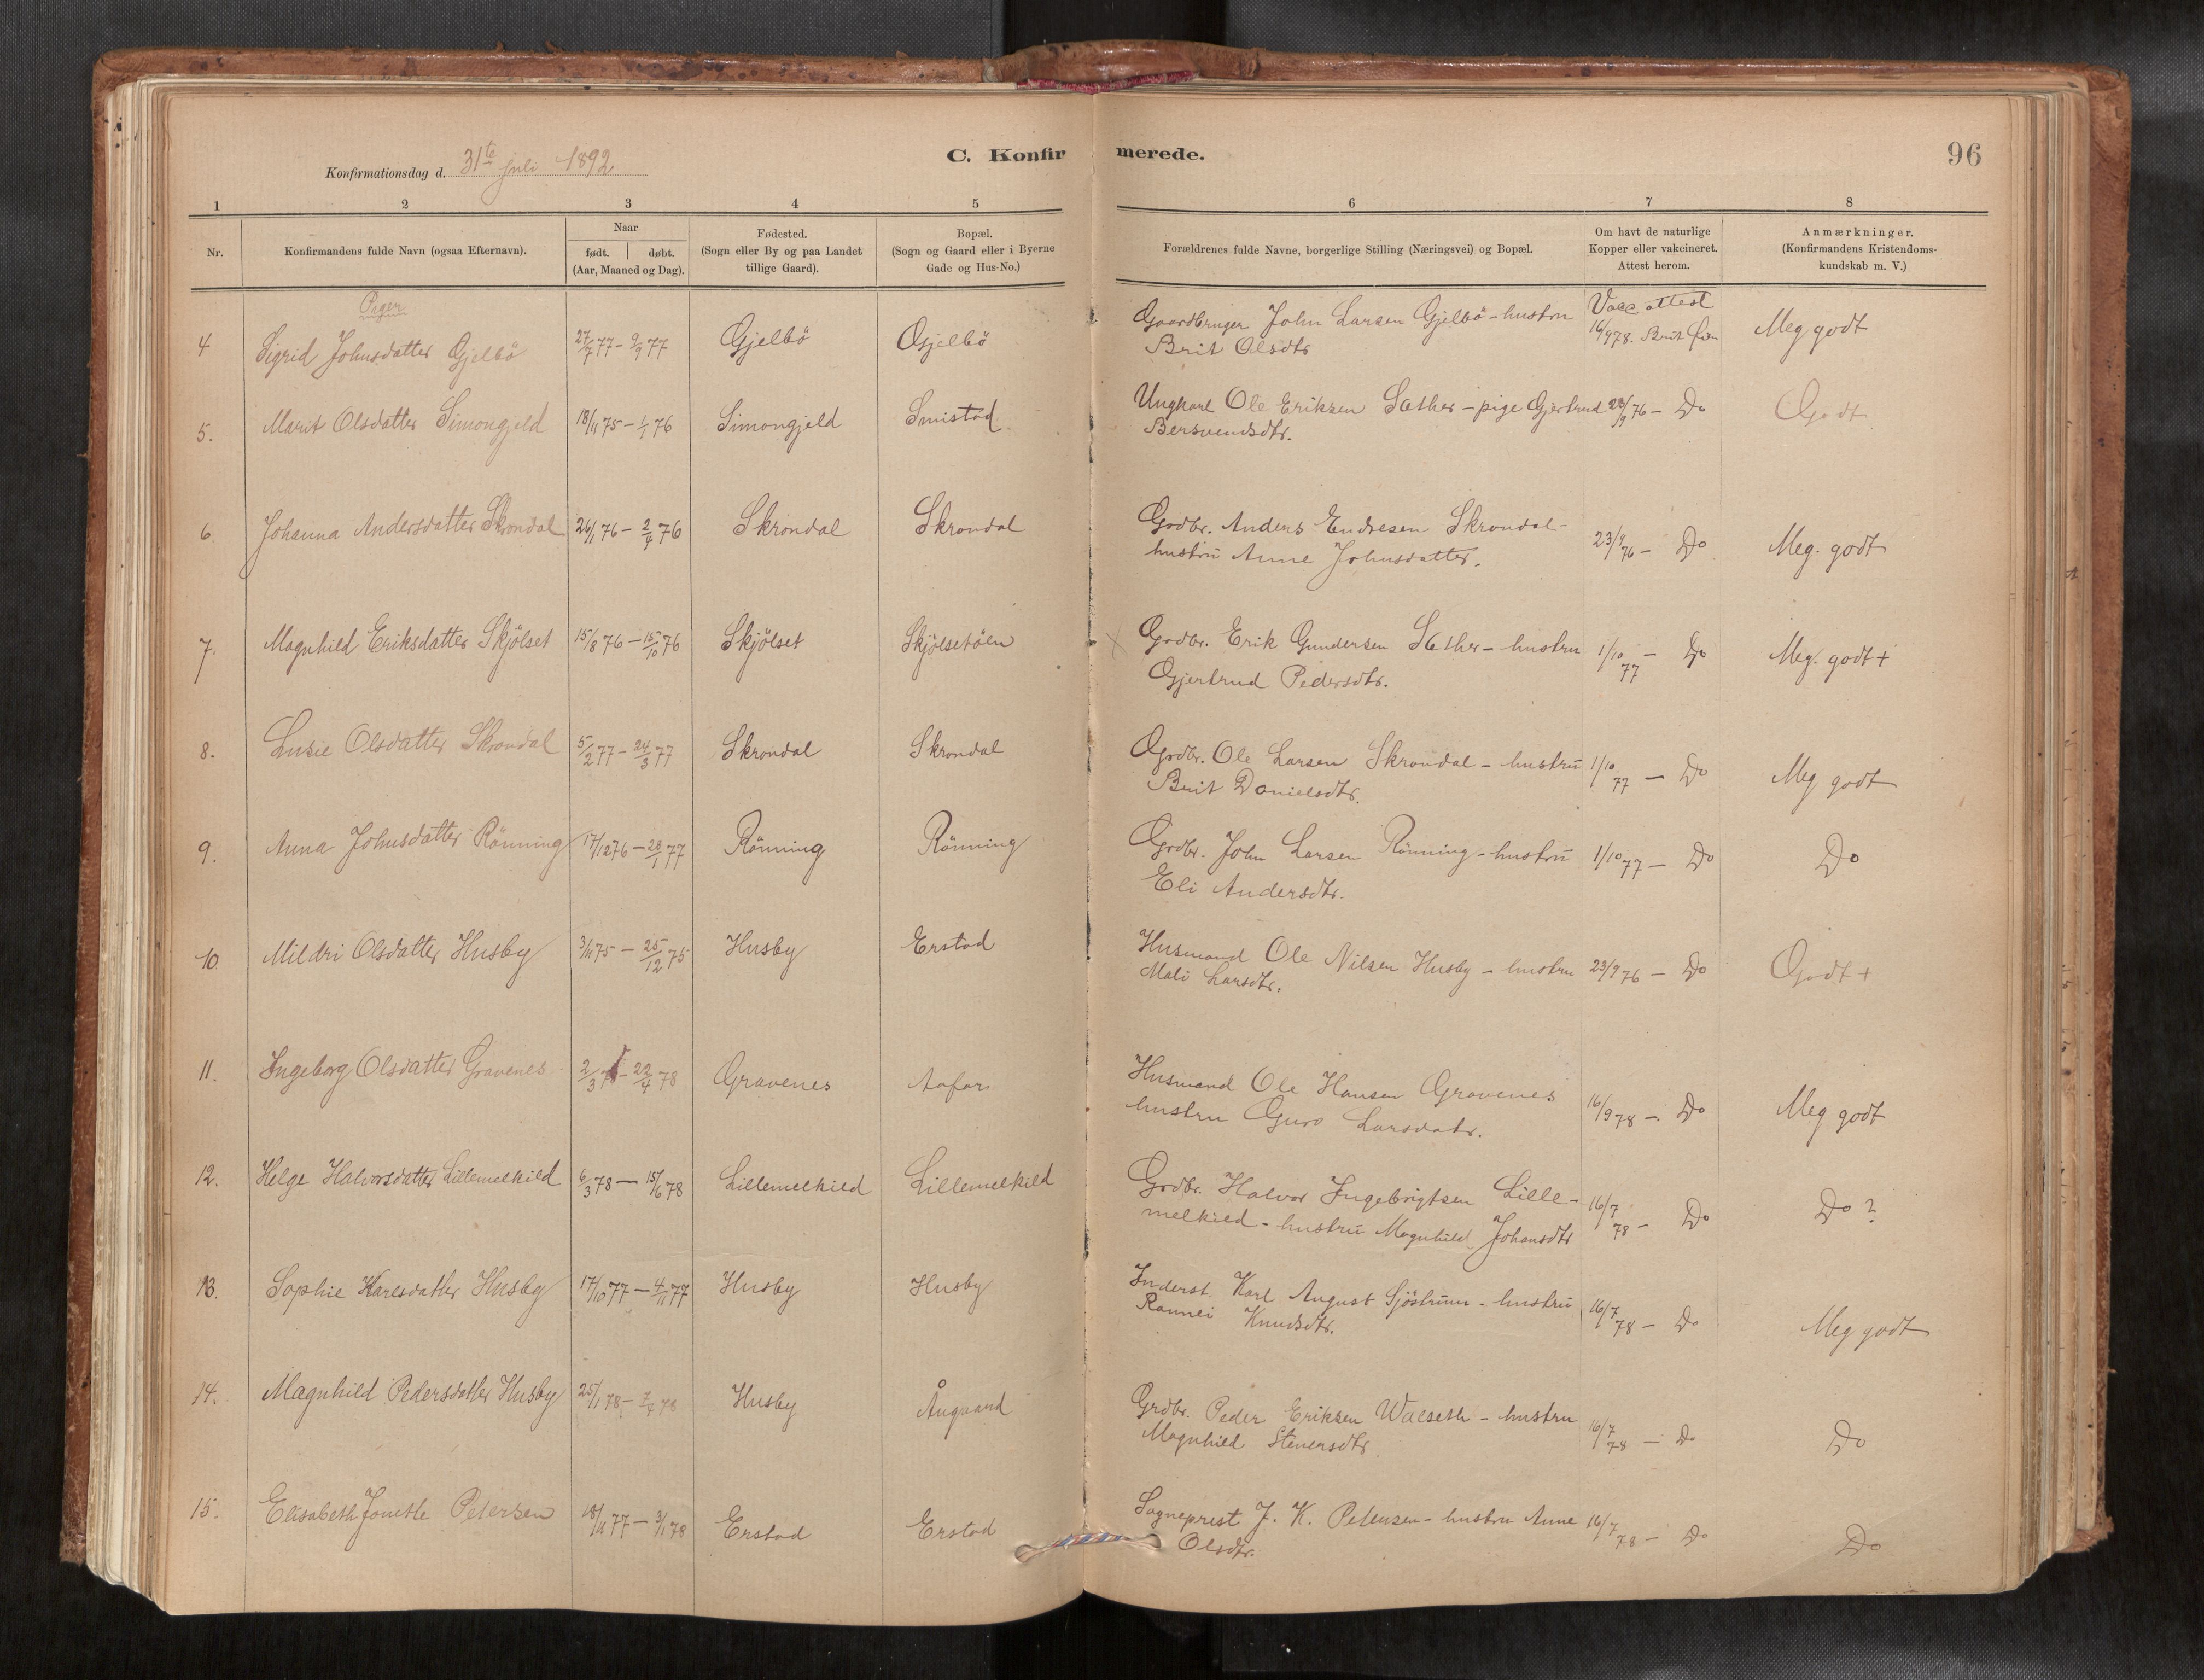 C. Konfirmerede.
96
Konfirmationsdag d. 31te juli 1892
1 2 3 4 5 6 7 8
Nr.
Konfirmandens fulde Navn (ogsaa Efternavn).
Naar
født. døbt.
(Aar, Maaned og Dag).
Fødested.
(Sogn eller By og paa Landet
tillige Gaard).
Bopæl.
(Sogn og Gaard eller i Byerne
Gade og Hus-No.)
Forældrenes fulde Navne, borgerlige Stilling (Næringsvei) og Bopæl.
Om havt de naturlige
Kopper eller vakcineret.
Attest herom.
Anmærkninger.
(Konfirmandens Kristendoms-
kundskab m. V.)
Piger
4 Sigrid Johnsdatter Gjelbö 27/7 77 - 9/9 77 Gjelbö Gjelbö Gaardbruger John Larsen Gjelbö - hustru Vacc attest
Brit Olsdtr 16/9 78. Brit Meg godt
5. Marit Olsdatter Simongjeld 18/11 75 - 1/1 76 Simongjeld Smistad Ungkarl Ole Eriksen Sæther - pige Gjertrud 23/9 76 - Do Godt
Bersvendsdtr.
6. Johanna Andersdatter Skrondal 26/1 76 - 2/4 76 Skrondal Skrondal Grdbr. Anders Endresen Skrondal -
hustru Anne Johnsdatter. 23/9 76 - Do Meg. godt
7. Magnhild Eriksdatter Skjölset 15/8 76 - 15/10 76 Skjölset Skjölsetöien Grdbr. Erik Gundersen Sæther - hustru 1/10 77 - Do Meg. godt +
Gjertrud Pedersdtr.
8. Lusie Olsdatter Skrondal 5/2 77 - 24/3 77 Skrondal Skrondal Grdbr. Ole Larsen Skrondal - hustru 1/10 77 - Do Meg godt
Brit Danielsdtr.
9. Anna Johnsdatter Rönning 17/12 76 - 28/1 77 Rönning Rönning Grdbr. John Larsen Rönning - hustru 1/10 77 - Do Do
Eli Andersdtr.
10. Mildri Olsdatter Husby 3/11 75 - 25/12 75 Husby Erstad Husmand Ole Nilsen Husby - hustru 23/9 76 - Do Godt +
Mali Larsdtr.
11. Ingeborg Olsdatter Gravenes 2/3 78 - 22/4 78 Gravenes Husmand Ole Hansen Gravenes
hustru Guro Larsdatr. 16/9 78 - Do Meg godt
12. Helge Halvorsdatter Lillemelkild 6/3 78 - 15/6 78 Lillemelkild Lillemelkild Grdbr. Halvor Ingebrigtsen Lille-
melkild - hustru Magnhild Johansdtr 16/7 78 - Do Do ?
13. Sophie Karlsdatter Husby 17/10 77 - 4/11 77 Husby Husby Inderst. Karl August Sjöstrum - hustru 16/7 78 - Do Meg godt
Rannei Knudsdtr.
14. Magnhild Pedersdatter Husby 25/1 78 - 7/4 78 Husby Ångaard Grdbr. Peder Eriksen Walseth - hustru 16/7 78 - Do Do
Magnhild Stenersdtr.
15. Elisabeth Jonette Petersen 18/11 77 - 3/1 78 Erstad Erstad Sogneprest J. K. Petersen - hustru Anne 16/7 78 - Do Do
Olsdtr.